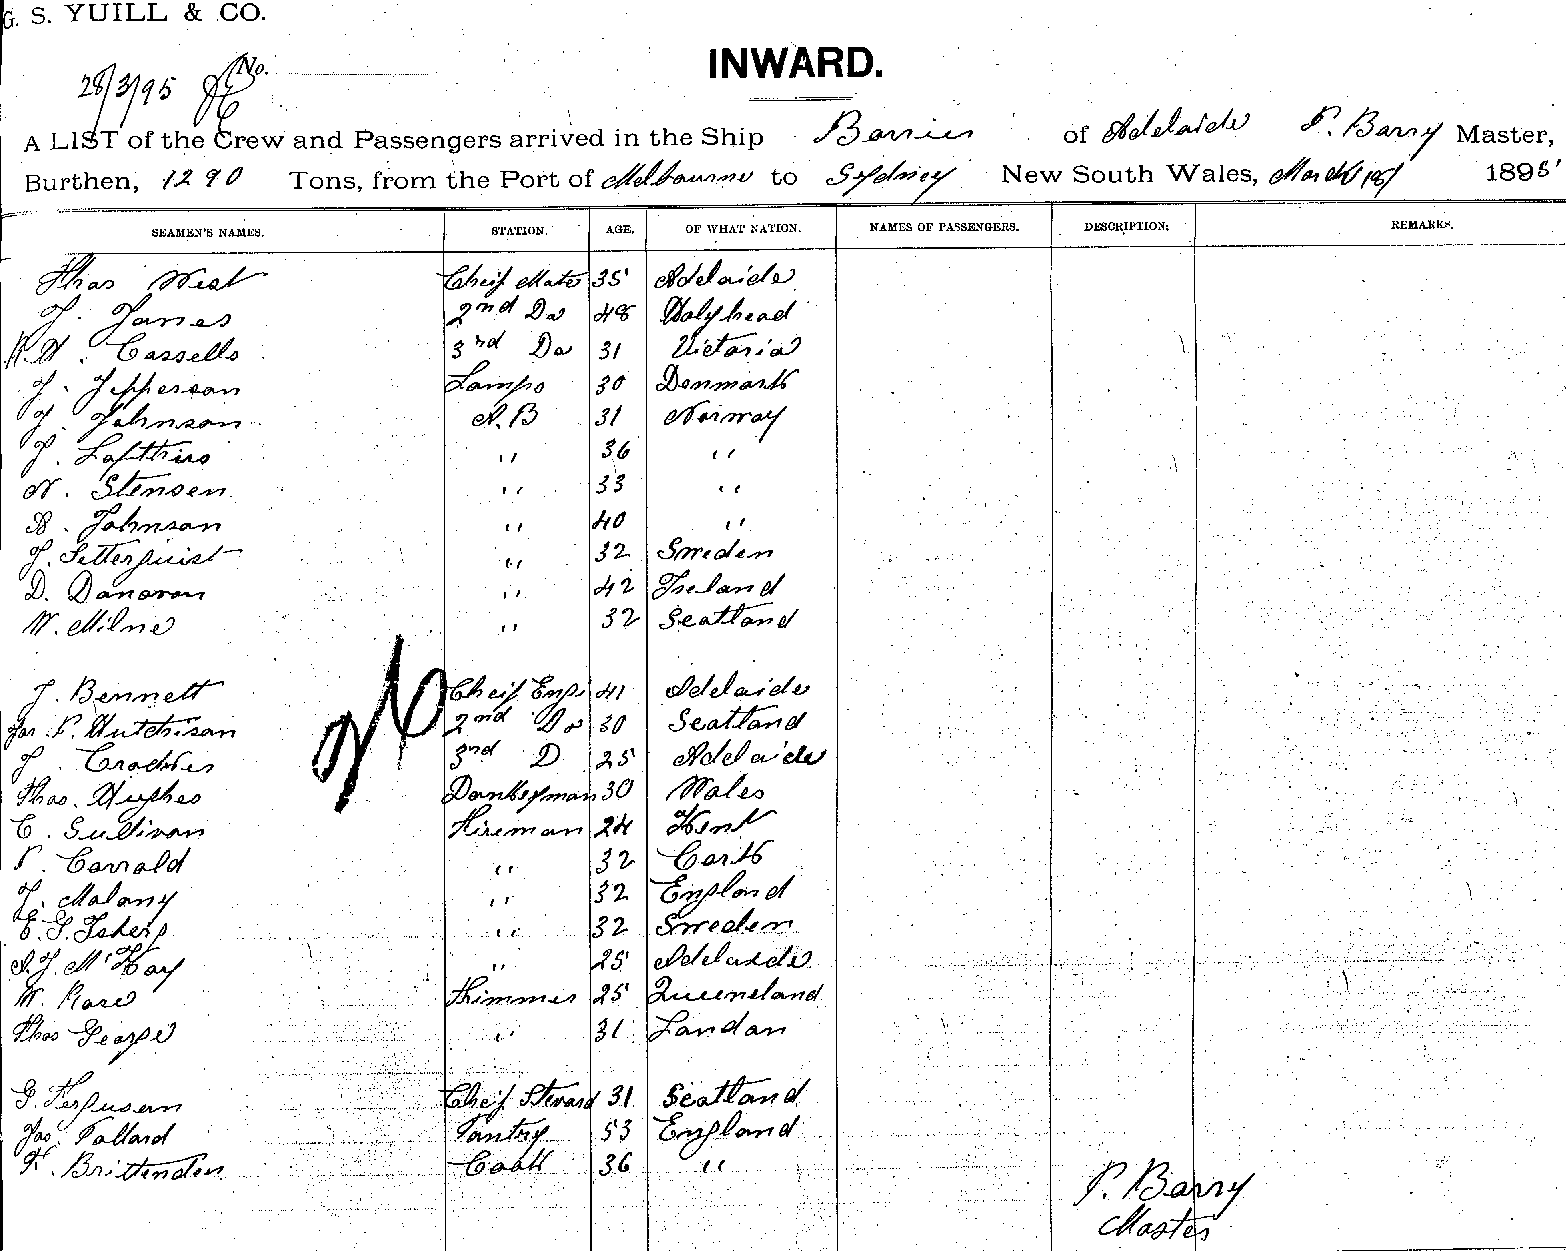 G. S. YUILL & CO.
INWARD.
28/3/95 No.
A LIST of the Crew and Passengers arrived in the Ship Barrier of Adelaide P. Barry Master,
Burthen, 1290 Tons, from the Port of Melbourne to Sydney New South Wales, March 1895
SEAMEN'S NAMES. STATION. AGE. OF WHAT NATION. NAMES OF PASSENGERS. DESCRIPTION: REMARKS.
Thos West Cheif Mate 35 Adelaide
J. James 2nd Do 48 Holyhead
Cassells 3rd Do 31 Victoria
J. Jepperson Lamps 30 Denmark
J. Johnson A.B 31 Norway
J. " 36 "
N. Stensen " 33 "
B. Johnson " 40 "
J. Setterquist " 32 Sweden
D. Donovan " 42 Ireland
W. Milne " 32 Scotland
26
J. Bennett Cheif Engi 41 Adelaide
Jas P. Hutchison 2nd Do 30 Scotland
J. 3rd D 25 Adelaide
Thos. Hughes Donkeyman 30 Wales
C. Sullivan Fireman 24 Kent
P. Carrold " 32 Cork
J. Malony " 32 England
E. G. Isberg " 32 Sweden
McKay " 25 Adelaide
W. Rose Trimmer 25 Queensland
Thos George " 31 London
G. Fergusern Cheif Steward 31 Scotland
Jas. Pollard Pantry 53 England
F. Brittenden Cook 36 "
P. Barry
Master